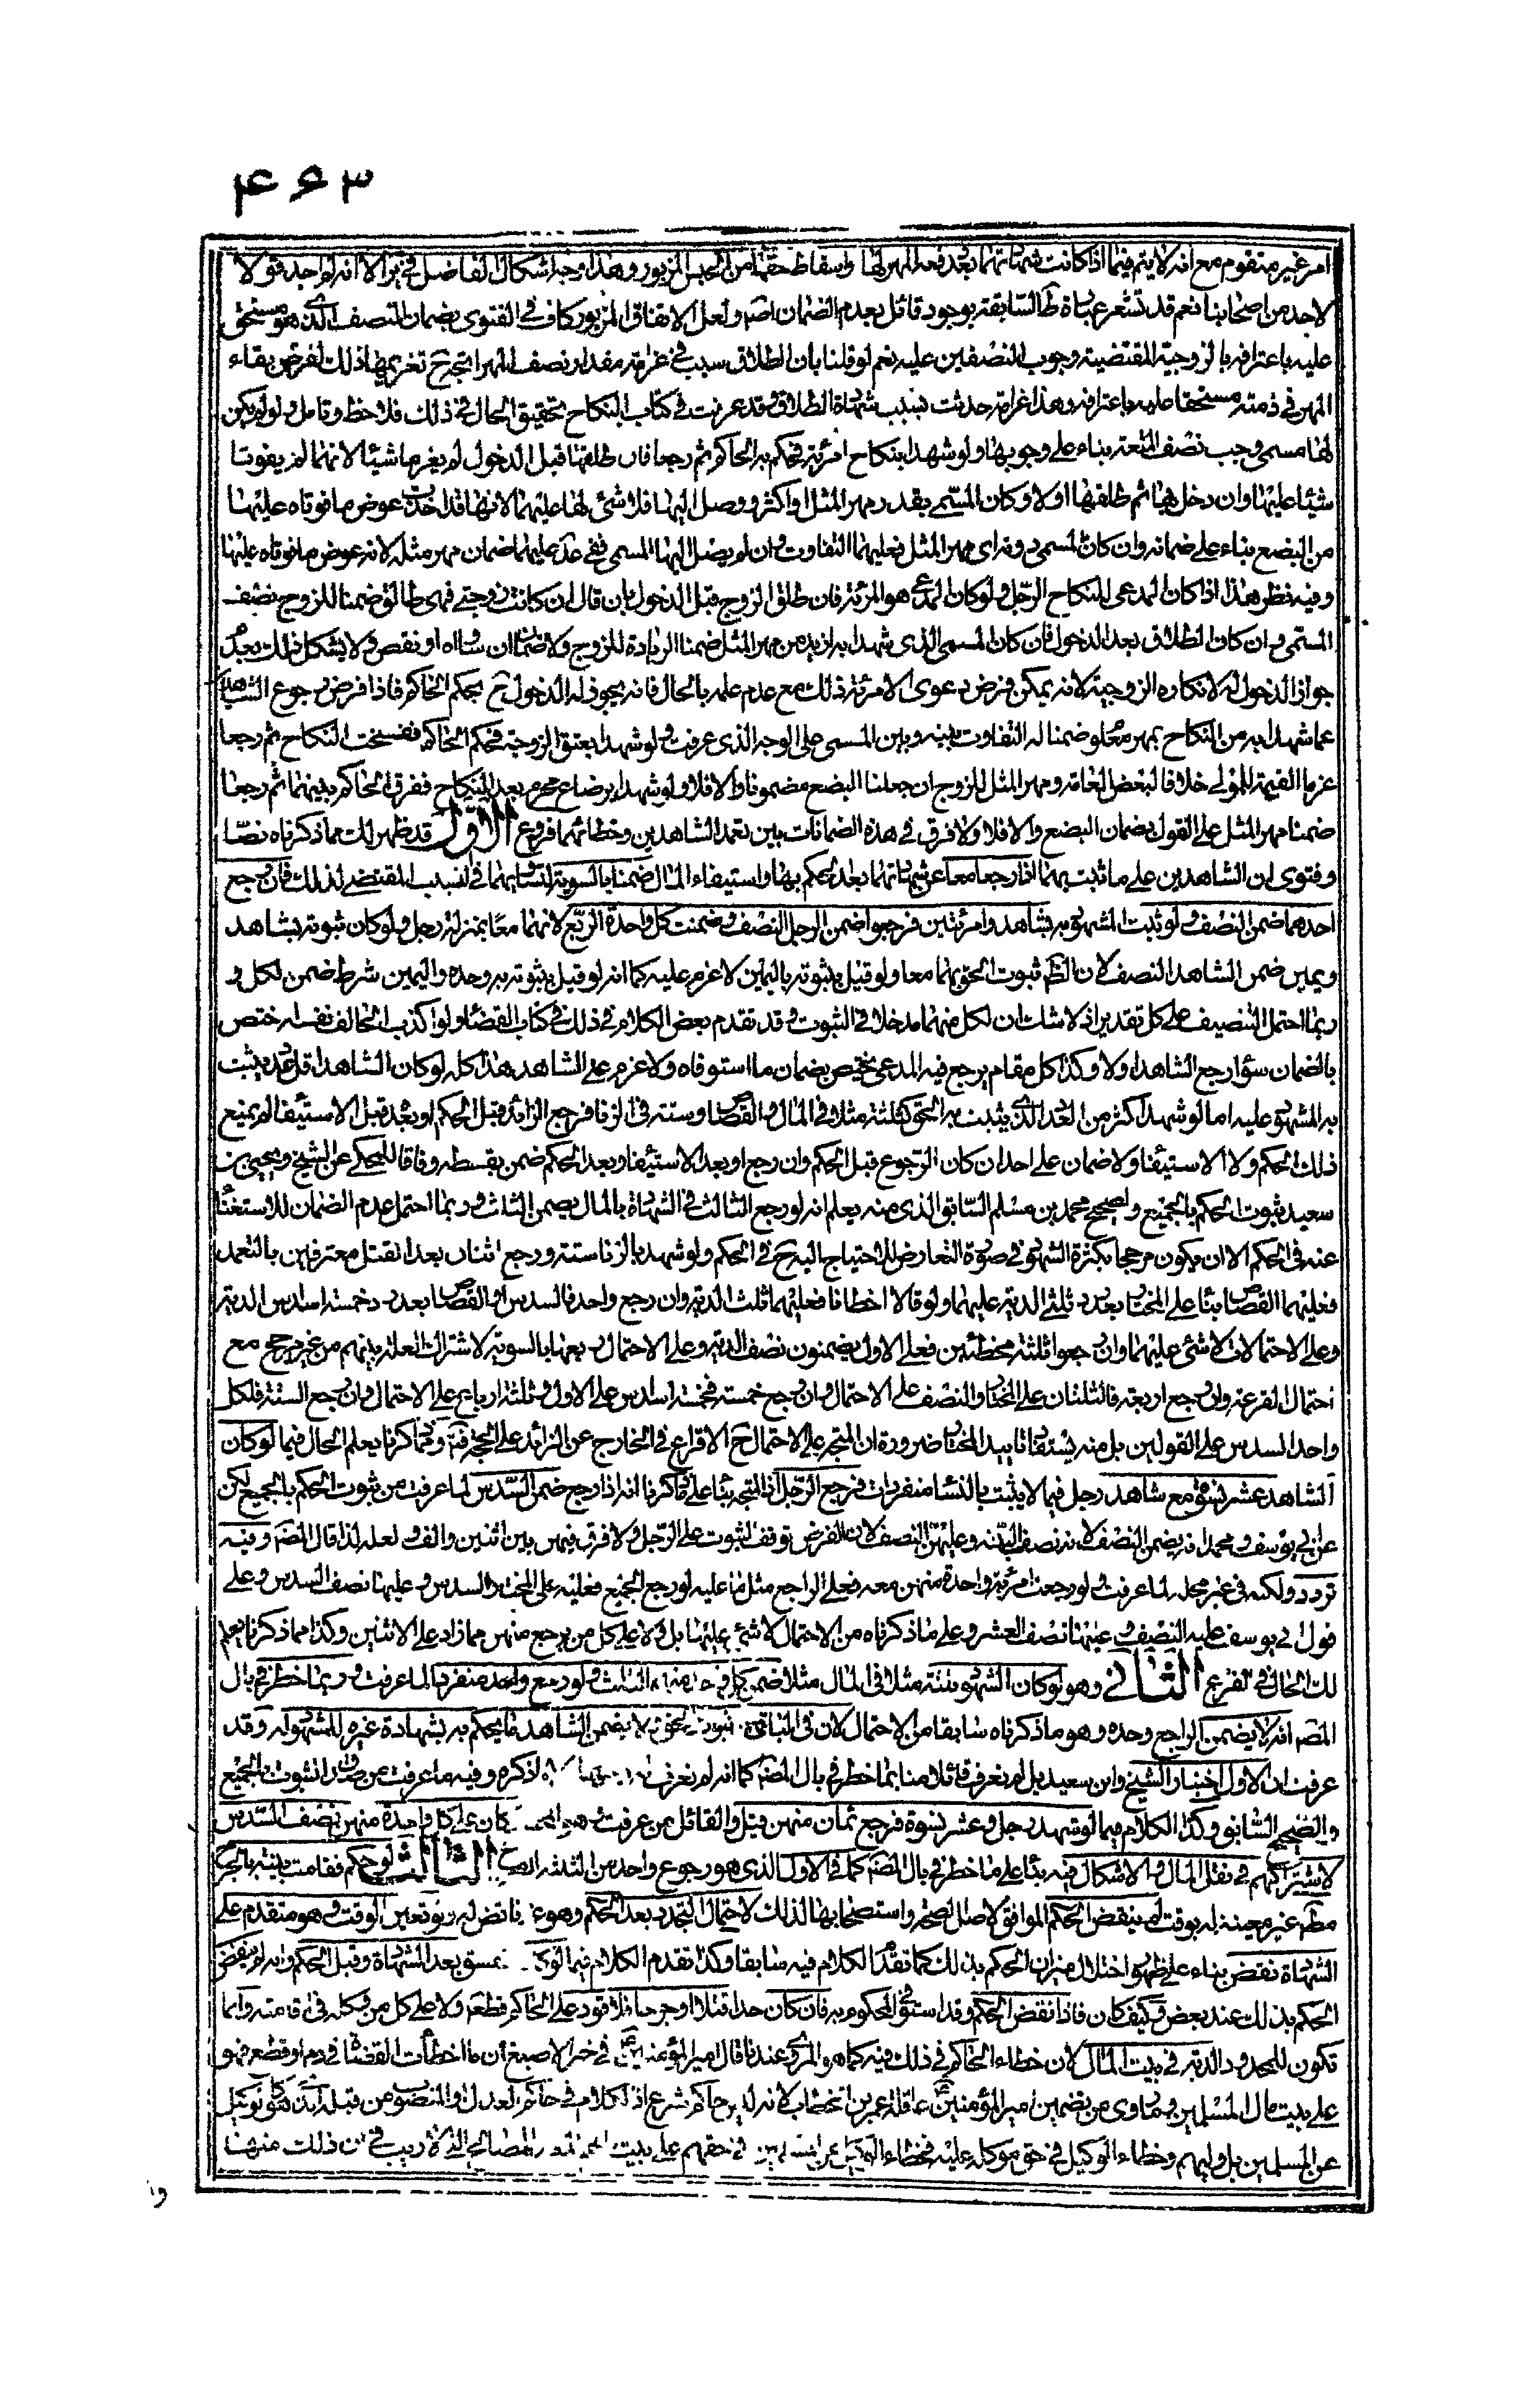 ۴۶۳
امر غير متقوم مع انه لا يتم فيما اذا كانت شهادتهما بعد دفعه المهر لها واسقاط حقها من الحبس المزبور وهذا وجه اشكال الفاضل في ير الا انه لم اجد قولا
لاحد من اصحابنا نعم قد تشعر عبارة ط السابقة بوجود قائل بعدم الضمان اصلا ولعل الاتفاق المزبور كاف في الفتوى بضمان النصف الذي هو مستحق
عليه باعترافه بالزوجية المقتضية وجوب النصفين عليه نعم لو قلنا بان الطلاق سبب في غرامة مقدار نصف المهر اتجه ح تغريمهما ذلك لفرض بقاء
المهر في ذمته مستحقا عليه باعترافه وهذا غرامة حدثت بسبب شهادة الطلاق وقد عرفت في كتاب النكاح تحقيق الحال في ذلك فلاحظ وتامل ولو لم يكن
لها مسمى وجب نصف المتعة بناء على وجوبها ولو شهدا بنكاح امرئة فحكم به الحاكم ثم رجعا فان طلقها قبل الدخول لم يغرما شيئا لانهما لم يفوتا
شيئا عليها وان دخل بها ثم طلقها اولا وكان المسمى بقدر مهر المثل او اكثر ووصل اليها فلا شئ لها عليهما لانها قد اخذت عوض ما فوتاه عليها
من البضع بناء على ضمانه وان كان المسمى دونه اي مهر المثل فعليهما التفاوت وان لم يصل اليها المسمى ففي عد عليهما ضمان مهر مثله لانه عوض ما فوتاه عليها
وفيه نظر هذا اذا كان المدعى للنكاح الرجل ولو كان المدعي هو المرئة فان طلق الزوج قبل الدخول بان قال ان كانت زوجتي فهي طالق ضمنا للزوج نصف
المسمى وان كان الطلاق بعد الدخول فان كان المسمى الذي شهدا به ازيد من مهر المثل ضمنا الزيادة للزوج ولا ضمان ان ساواه او نقص ولا يشكل ذلك بعدم
جواز الدخول له لانكاره الزوجية لانه يمكن فرض دعوى الامرئة ذلك مع عدم علمه بالحال فانه يجوز له الدخول ح بحكم الحاكم فاذا فرض رجوع الشاهدين
عما شهدا به من النكاح بمهر معلوم ضمنا له التفاوت بينه وبين المسمى على الوجه الذي عرفت ولو شهدا بعتق الزوجة فحكم الحاكم ففسخت النكاح ثم رجعا
غرما القيمة للمولى خلافا لبعض العامة ومهر المثل للزوج ان جعلنا البضع مضمونا والا فلا ولو شهدا برضاع محرم بعد النكاح ففرق الحاكم بينهما ثم رجعا
ضمنا مهر المثل على القول بضمان البضع والا فلا ولا فرق في هذه الضمانات بين تعمد الشاهدين وخطائهما فروع الاول قد ظهر لك مما ذكرناه نصا
وفتوى ان الشاهدين على ما ثبت بهما اذا رجعا معا عن شهادتهما بعد الحكم بها واستيفاء المال ضمنا بالسوية لتساويهما في السبب المقتضي لذلك فان رجع
احدهما ضمن النصف ولو ثبت المشهود به بشاهد وامرئتين فرجعوا ضمن الرجل النصف وضمنت كل واحدة الربع لانهما معا بمنزلة رجل ولو كان ثبوته بشاهد
ويمين ضمن الشاهد النصف لان الظ ثبوت الحق بهما معا ولو قيل بثبوته باليمين لا غرم عليه كما انه لو قيل بثبوته به وحده واليمين شرط ضمن لكل و
ربما احتمل التنصيف على كل تقدير اذ لا شك ان لكل منهما مدخلا في الثبوت وقد تقدم بعض الكلام في ذلك في كتاب القضاء ولو اكذب الحالف نفسه اختص
بالضمان سواء رجع الشاهد اولا وكذا كل مقام يرجع فيه المدعي يختص بضمان ما استوفاه ولا غرم على الشاهد هذا كله لو كان الشاهد اقل عدد يثبت
به المشهود عليه اما لو شهد اكثر من العدد الذي يثبت به الحق كثلثة مثلا في المال والقصاص وستة في الزنا فرجع الزائد قبل الحكم او بعد قبل الاستيفاء لم يمنع
ذلك الحكم ولا الاستيفاء ولا ضمان على احد ان كان الرجوع قبل الحكم وان رجع او بعد الاستيفاء وبعد الحكم ضمن بقسطه وفاقا للمحكي عن الشيخ ويحيى بن
سعيد ثبوت الحكم بالجميع ولصحيح محمد بن مسلم السابق الذي منه يعلم انه لو رجع الثالث في الشهادة بالمال يضمن الثلث وربما احتمل عدم الضمان للاستغناء
عنه في الحكم الا ان يكون مرجحا بكثرة الشهود في صورة التعارض للاحتياج اليه ح في الحكم ولو شهد بالزنا ستة ورجع اثنان بعد القتل معترفين بالتعمد
فعليهما القصاص بناء على المختار بعد رد ثلثي الدية عليهما ولو قالا اخطانا فعليهما ثلث الدية وان رجع واحد فالسدس او القصاص بعد رد خمسة اسداس الدية
وعلى الاحتمالات لا شئ عليهما وان رجعوا ثلثة مخطئين فعلى الاول يضمنون نصف الدية وعلى الاحتمال ربعها بالسوية لاشتراك العلة بينهم من غير مرجح مع
احتمال القرعة ولو رجع اربعة فالثلثان على المختار والنصف على الاحتمال وان رجع خمسة فخمسة اسداس على الاول وثلثة ارباع على الاحتمال وان رجع الستة فلكل
واحد السدس على القولين بل منه يستفاد تاييد المختار ضرورة ان المتجه على الاحتمال ح الاقراع في الخارج عن الزائد على الحجة فت ومما ذكرنا يعلم الحال فيما لو كان
الشاهد عشر نسوة مع شاهد رجل فيما لا يثبت بالنساء منفردات فرجع الرجل اذ المتجه بناء على ما ذكرنا انه اذا رجع ضمن السدس لما عرفت من ثبوت الحكم بالجميع لكن
عن ابي يوسف ومحمد انه يضمن النصف لانه نصف البينة وعليهن النصف لان الفرض توقف الثبوت على الرجل ولا فرق فيهن بين اثنين والف ولعله لذا قال المص وفيه
تردد ولكنه في غير محله لما عرفت ولو رجعت امرئة واحدة منهن معه فعلى الراجع مثل ما عليه لو رجع الجميع فعليه على المختار السدس وعليها نصف السدس وعلى
قول ابي يوسف عليه النصف وعليها نصف العشر وعلى ما ذكرناه من الاحتمال لا شئ عليها بل ولا على كل من يرجع منهن مما زاد على الاثنين وكذا مما ذكرنا يعلم
لك الحال في الفرع الثاني وهو لو كان الشهود ثلثة مثلا في المال مثلا ضمن كل واحد منهم الثلث ولو رجع واحد منفردا لما عرفت وربما خطر في بال
المص انه لا يضمن الراجع وحده وهو ما ذكرناه سابقا من الاحتمال لان في الباقي ثبوت الحق ولا يضمن الشاهد ما يحكم به بشهادة غيره للمشهود له وقد
عرفت ان الاول اختيار الشيخ وابن سعيد بل لم نعرف قائلا منا بما خطر في بال المص كما انه لم نعرف لذكره وفيه ما عرفت من صدق الثبوت بالجميع
والصحيح السابق وكذا الكلام فيما لو شهد رجل وعشر نسوة فرجع ثمان منهن قيل والقائل من عرفت كان على كل واحدة منهن نصف السدس
لاشتراكهم في نقل المال والاشكال فيه بناء على ما خطر في بال المص كما في الاول الذي هو رجوع واحد من الثلثة الثالث لو حكم فقامت بينة بالجرح
مط غير معينة له بوقت لم ينقض الحكم الموافق لاصل الصحة واستصحابها لذلك لاحتمال التجدد بعد الحكم وهو ناقض له ولو تعين الوقت وهو متقدم على
الشهادة نقض بناء على ظهور اختلال ميزان الحكم بذلك كما تقدم الكلام فيه سابقا وكذا تقدم الكلام فيما لو بفسق بعد الشهادة وقبل الحكم وانه لم ينقض
الحكم بذلك عند بعض وكيف كان فاذا نقض الحكم وقد استوفى المحكوم به فان كان حدا قتلا او جرحا فلا قود على الحاكم قطعا ولا على كل من وكله في اقامته وانما
تكون للمحدود الدية في بيت المال لان خطاء الحاكم في ذلك فيه كما هو المروي عندنا قال امير المؤمنين ع في خبر الاصبغ ان ما اخطأت القضاة في دم او قطع فهو
على بيت مال المسلمين وما روى من تضمين امير المؤمنين ع عاقلة عمر بن الخطاب لانه لم ير حاكم شرع اذ الكلام في حاكم العدل والمنصوب من قبله الذي هو كوكيل
عن المسلمين بل وليهم وخطاء الوكيل في حق موكله عليه فخطاء الوكيل عن المسلمين في حقهم على بيت المصالح ريب في ان ذلك منها
وا